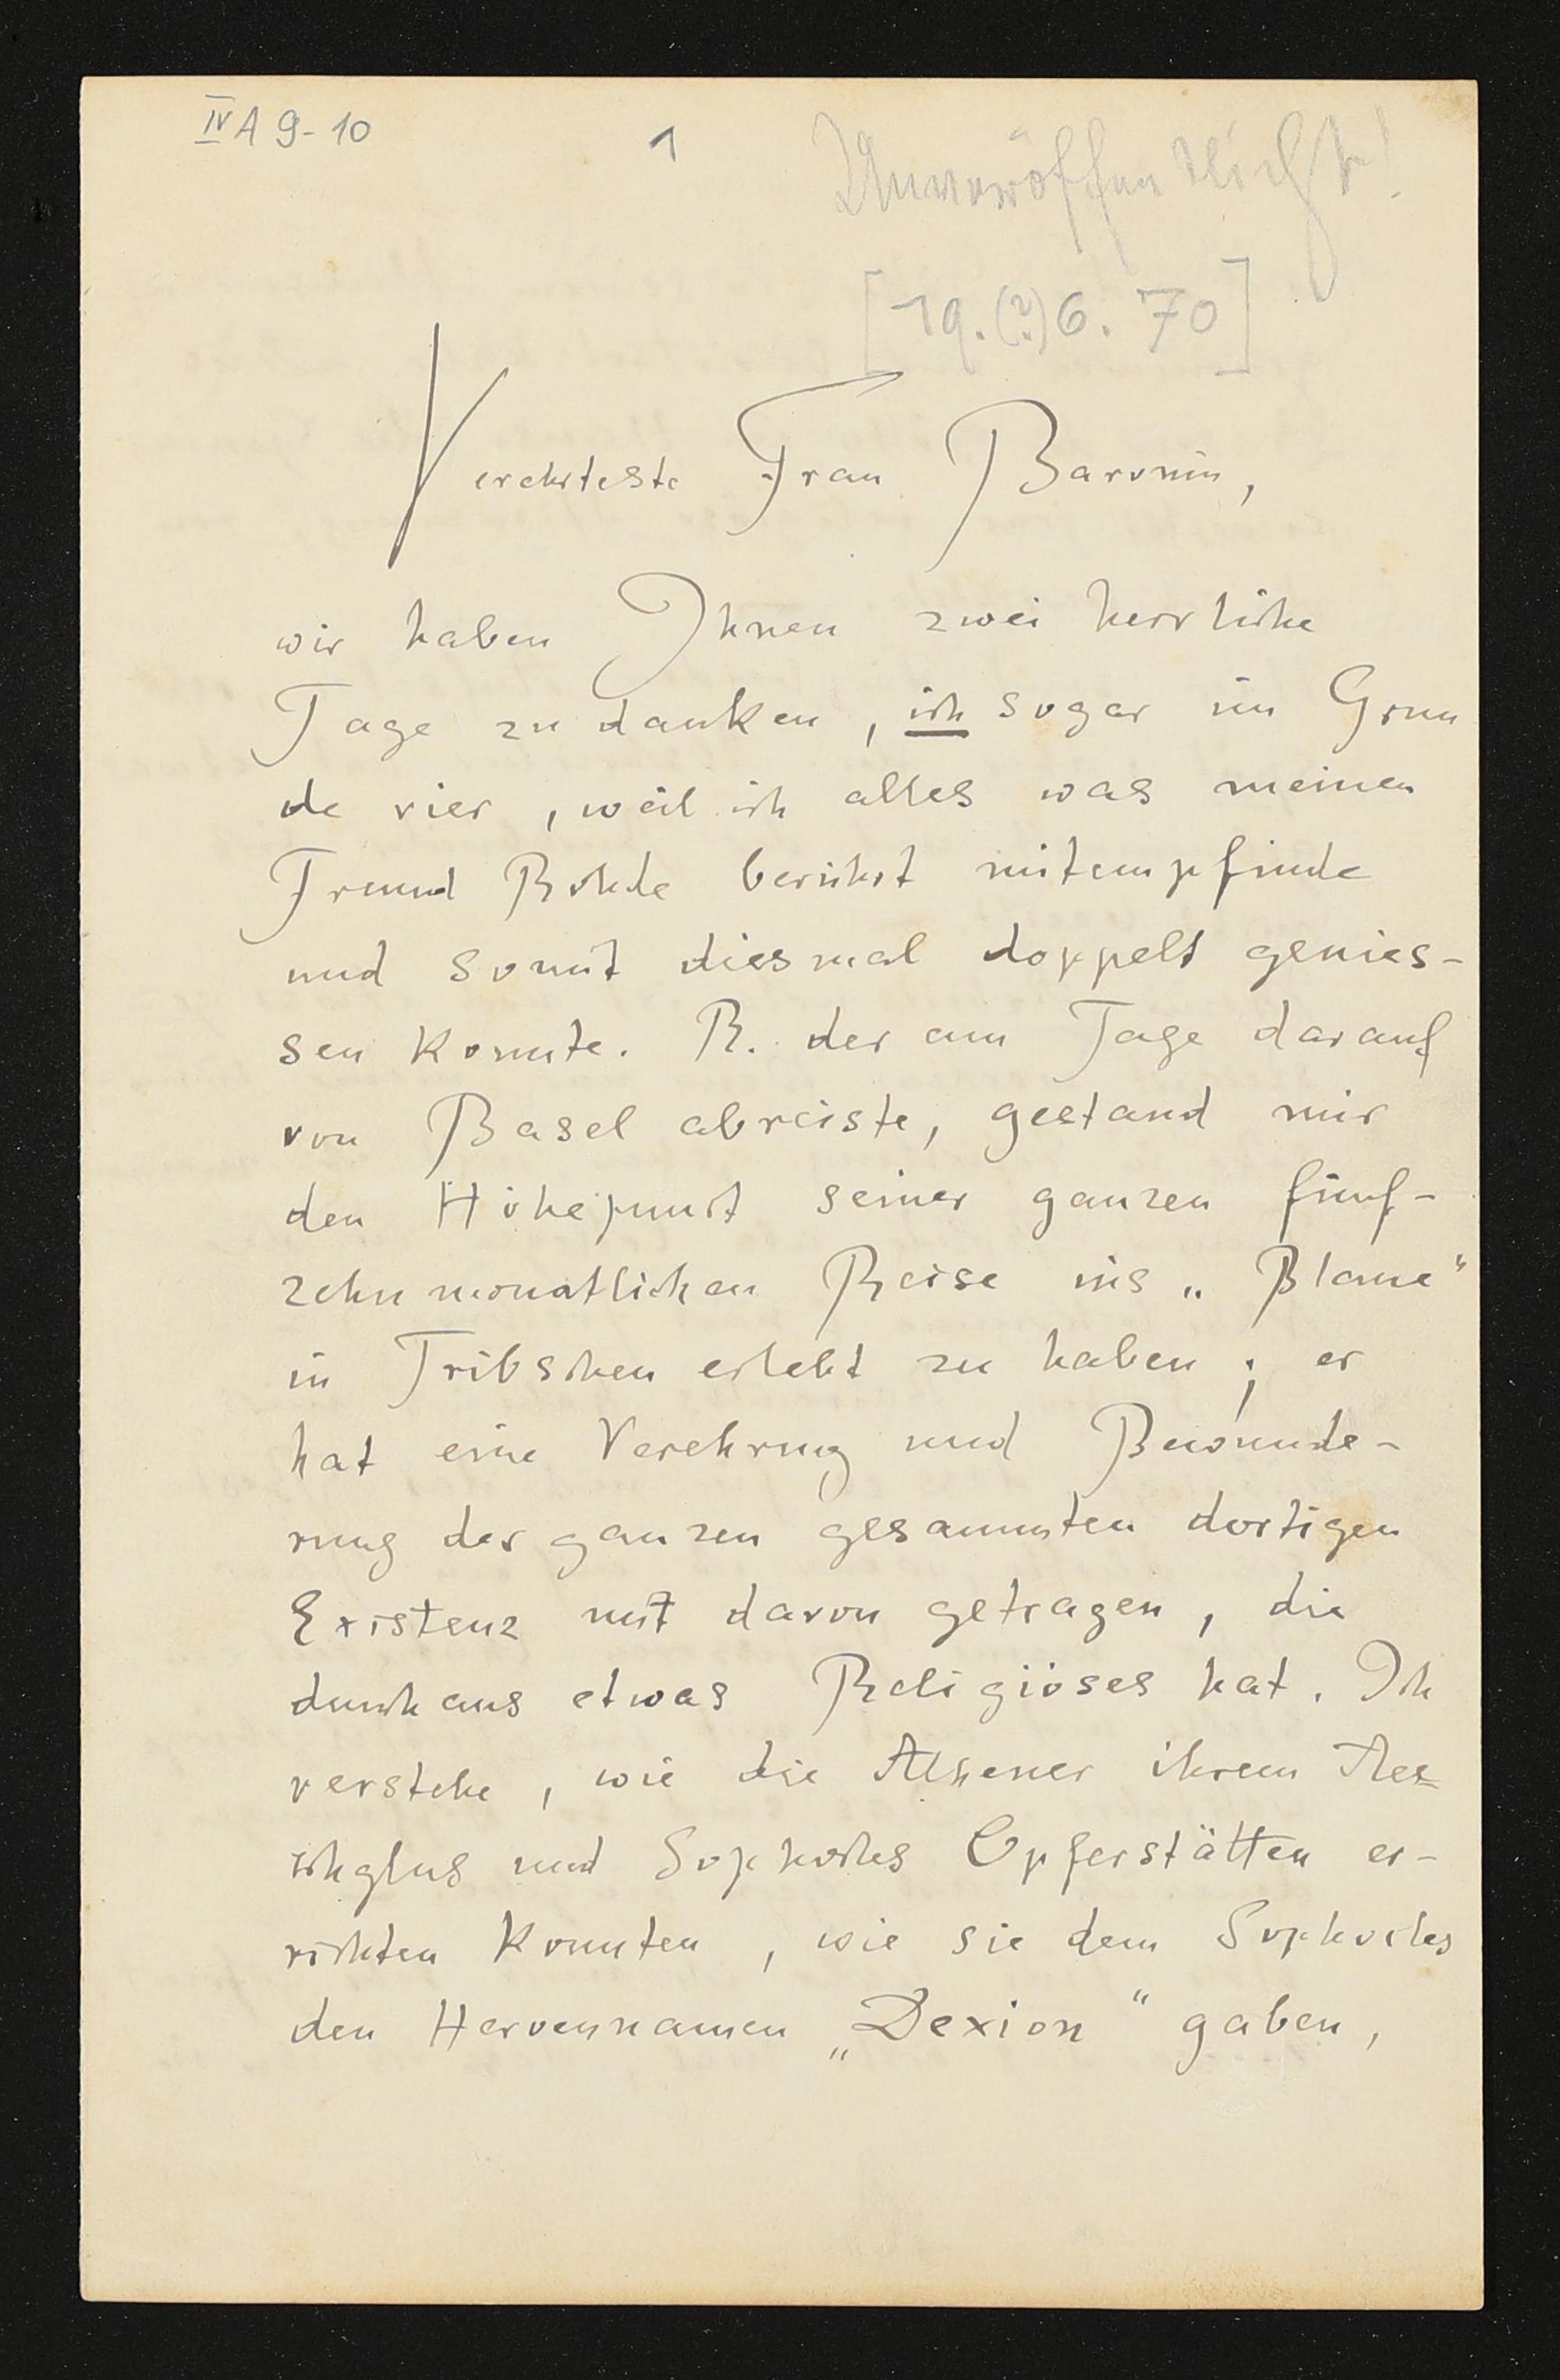 IV A 9-10
1
Unveröffentlicht!
[19.(?)6. 70]
Verehrteste Frau Baronin,
wir haben Ihnen zwei herrliche
Tage zu danken, ich sogar im Grun
de vier, weil ich alles was meinen
Freund Rohde berührt mitempfinde
und somit diesmal doppelt genies-
sen konnte. R. der am Tage darauf
von Basel abreiste, gestand mir
den Höhepunct seiner ganzen fünf-
zehnmonatlichen Reise ins „Blaue“
in Tribschen erlebt zu haben; er
hat eine Verehrung und Bewunde-
rung der ganzen gesammten dortigen
Existenz mit davon getragen, die
durchaus etwas Religiöses hat. Ich
verstehe, wie die Athener ihrem Aes-
chylus und Sophocles Opferstätten er-
richten konnten, wie sie dem Sophocles
den Heroennamen „Dexion“ gaben,